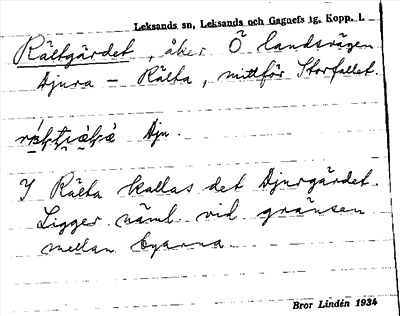 Leksands sn, Leksands och Gagnefs tg, Kopp. l.
Rältgärdet, åker Ö landsvägen
Djura – Rälta, mittför Storfallet.
Dju.
I Rälta kallas det Djurgärdet.
Ligger näml. vid gränsen
mellan byarna
Bror Lindén 1934